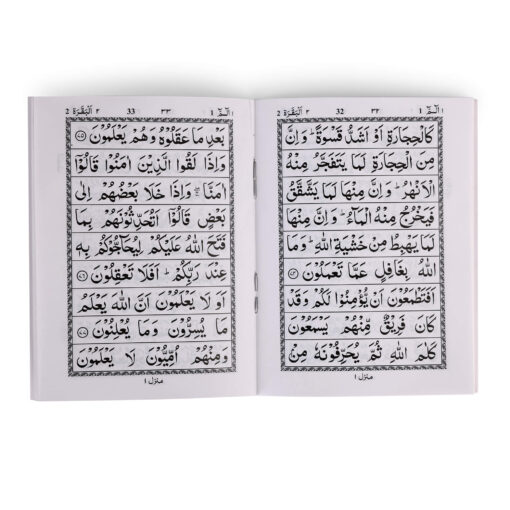 ١ الٓمّٓ 1 ٣٢ 32 ٢ اَلْبَقَرَة 2
كَالْحِجَارَةِ اَوْ اَشَدُّ قَسْوَةً ؕ وَاِنَّ
مِنَ الْحِجَارَةِ لَمَا يَتَفَجَّرُ مِنْهُ
الْاَنْهٰرُ ؕ وَاِنَّ مِنْهَا لَمَا يَشَّقَّقُ
فَيَخْرُجُ مِنْهُ الْمَآءُ ؕ وَاِنَّ مِنْهَا
لَمَا يَهْبِطُ مِنْ خَشْيَةِ اللّٰهِ ؕ وَمَا
اللّٰهُ بِغَافِلٍ عَمَّا تَعْمَلُوْنَ
اَفَتَطْمَعُوْنَ اَنْ يُّؤْمِنُوْا لَكُمْ وَقَدْ
كَانَ فَرِيْقٌ مِّنْهُمْ يَسْمَعُوْنَ
كَلٰمَ اللّٰهِ ثُمَّ يُحَرِّفُوْنَهٗ مِنْۢ
منزل ١
١ الٓمّٓ 1 ٣٣ 33 ٢ اَلْبَقَرَة 2
بَعْدِ مَا عَقَلُوْهُ وَهُمْ يَعْلَمُوْنَ
وَاِذَا لَقُوا الَّذِيْنَ اٰمَنُوْا قَالُوْٓا
اٰمَنَّا ۖۚ وَاِذَا خَلَا بَعْضُهُمْ اِلٰى
بَعْضٍ قَالُوْٓا اَتُحَدِّثُوْنَهُمْ بِمَا
فَتَحَ اللّٰهُ عَلَيْكُمْ لِيُحَآجُّوْكُمْ بِهٖ
عِنْدَ رَبِّكُمْ ؕ اَفَلَا تَعْقِلُوْنَ
اَوَلَا يَعْلَمُوْنَ اَنَّ اللّٰهَ يَعْلَمُ
مَا يُسِرُّوْنَ وَمَا يُعْلِنُوْنَ
وَمِنْهُمْ اُمِّيُّوْنَ لَا يَعْلَمُوْنَ
منزل ١